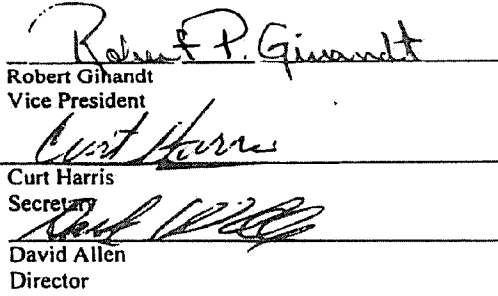 Robert P. Girandt
Robert Gihandt
Vice President
Curt Harris
Curt Harris
Secretary
David Allen
Director